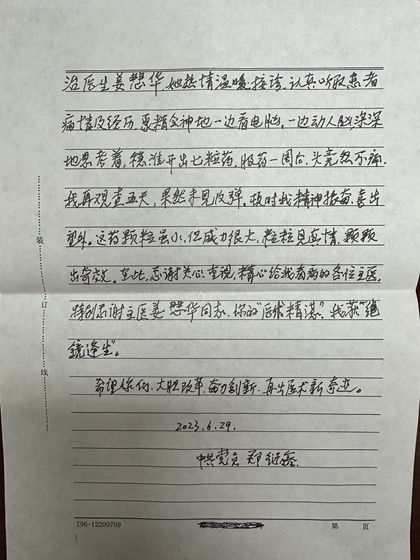 治医生姜慧华她热情温暖接诊，认真听取患者
病情及经历，聚精会神地一边看电脑，一边动人脑深深
地思考着，稳准开出七粒药，服药一周右，头竟然不痛，
我再观查五天，果然未见反弹。顿时我精神振奋，喜出
望外。这药颗粒虽小，但威力很大，粒粒见真情，颗颗
出奇效。至此，感谢关心、重视、精心给我看病的各位主医，
特别感谢主医姜慧华同志，你的"医术精湛"，我获"绝
镜逢生"。
希望你们，大胆改革，奋力创新，再出医术新奇迹。
2023.6.29.
中共党员 郑
装
订
线
Z96-12200709
第 页